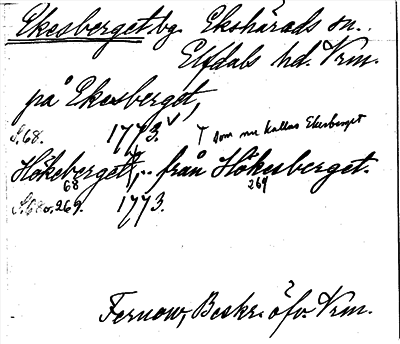 Ekesberget bg Ekshärads sn.
Elfdals hd. Vrm.
på Ekesberget,
S. 68. 1773. som nu kallas Ekesberget
Hökeberget, .. från Hökesberget.
68 269
S. 68 o. 269. 1773.
Fernow, Beskr. öfv. Vrm.